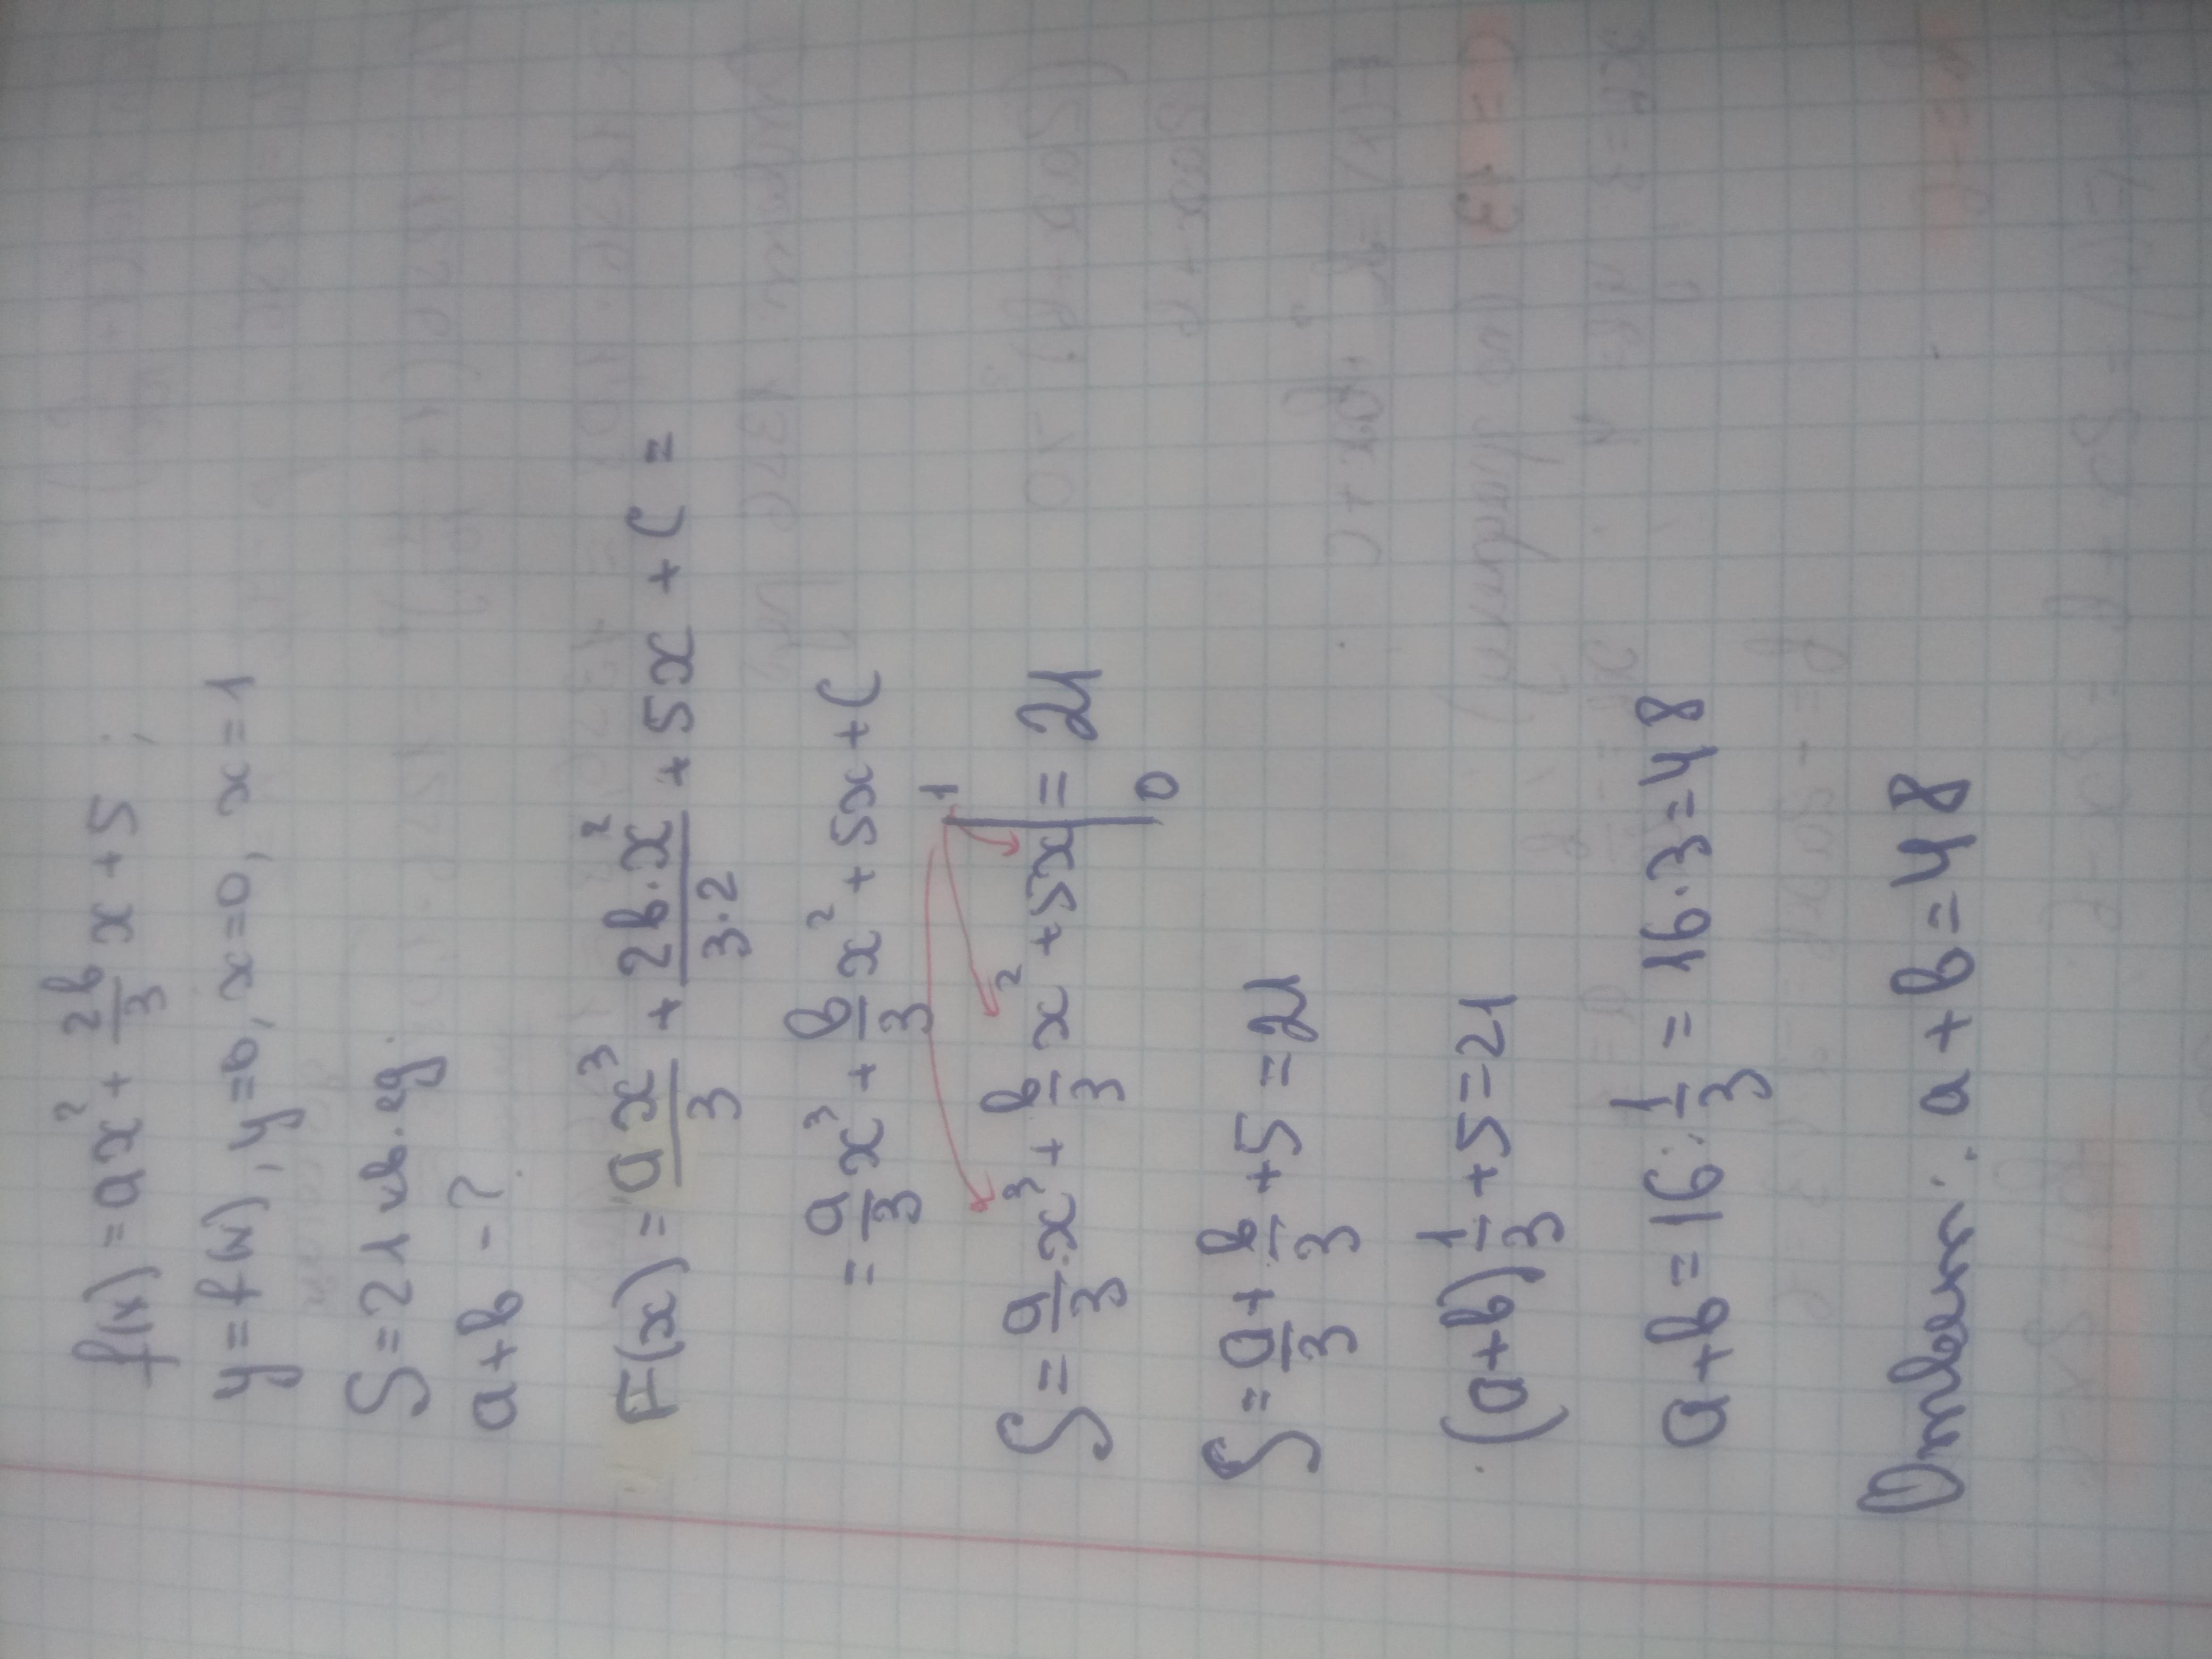 f(x) = ax² + 2b/3 x + 5 ;
y = f(x), y=0, x=0, x=1
S = 21 кв.ед
a+b - ?
F(x) = ax³/3 + 2b·x²/3·2 + 5x + C =
= a/3 x³ + b/3 x² + 5x + C
S = a/3·x³ + b/3 x² + 5x |¹₀ = 21
S = a/3 + b/3 + 5 = 21
(a+b) 1/3 + 5 = 21
a+b = 16 : 1/3 = 16·3 = 48
Ответ: a+b = 48